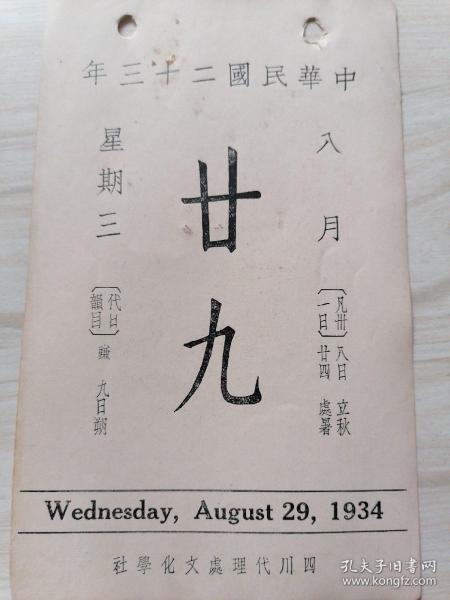 中華民國二十三年
八月
〔凡卅一日〕
八日 立秋
廿四 處暑
廿九
星期三
〔代日韻目〕
九日朔
Wednesday, August 29, 1934
四川代理處文化學社
孔夫子旧书网
www.kongfz.com